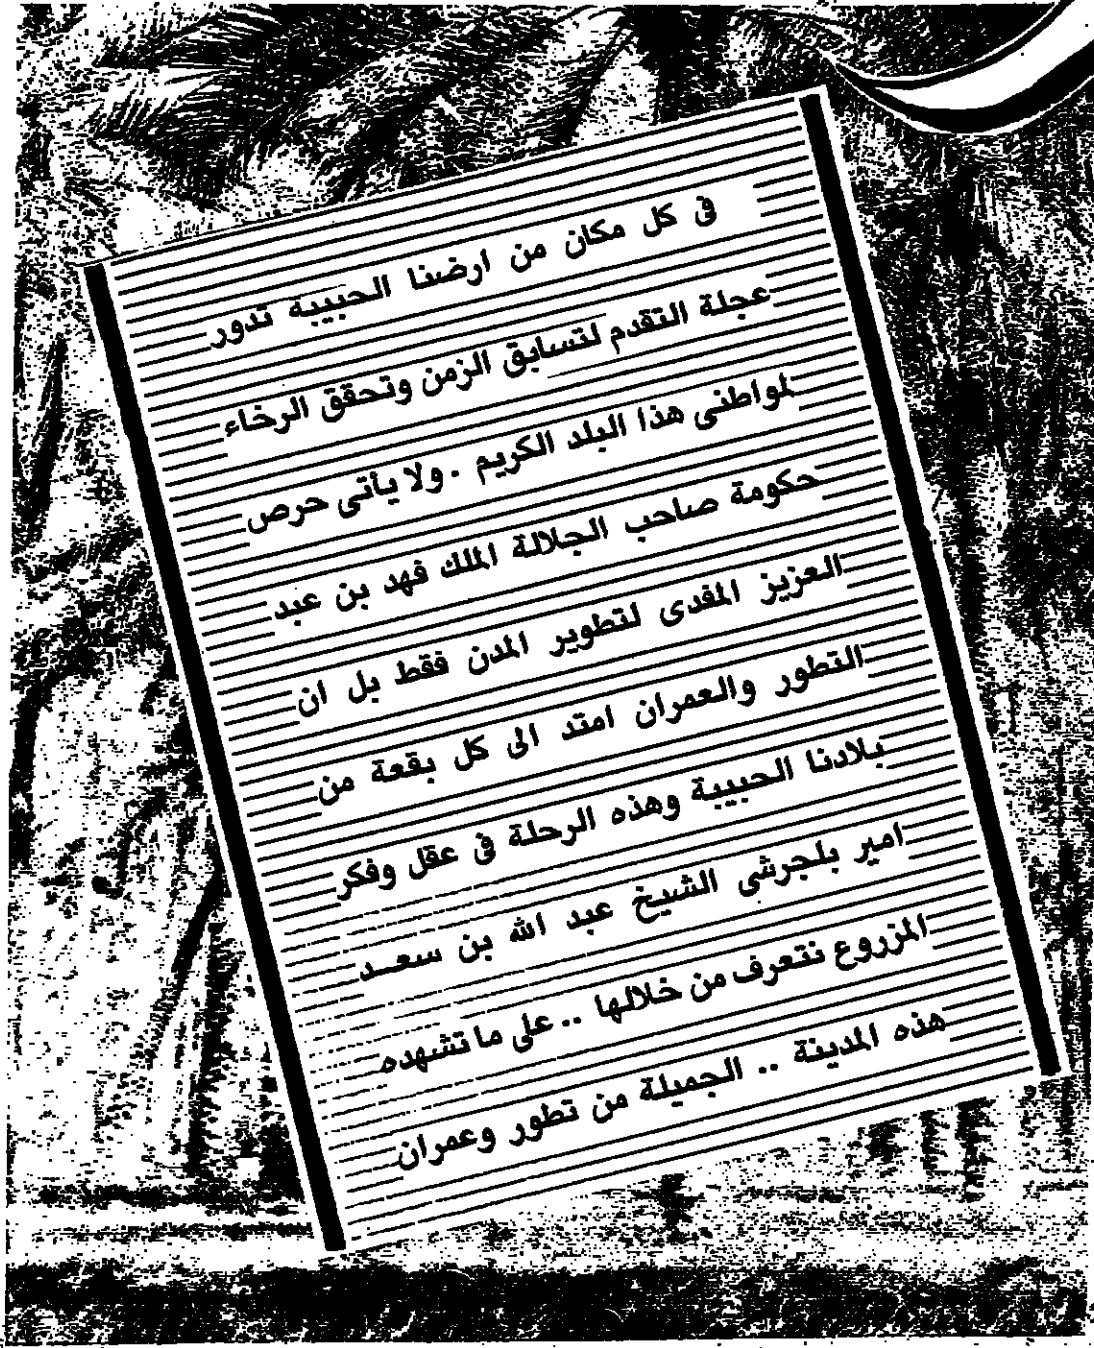 فى كل مكان من ارضنا الحبيبه تدور
عجلة التقدم لتسابق الزمن وتحقق الرخاء
لمواطنى هذا البلد الكريم . ولا يأتى حرص
حكومة صاحب الجلالة الملك فهد بن عبد
العزيز المفدى لتطوير المدن فقط بل ان
التطور والعمران امتد الى كل بقعة من
بلادنا الحبيبة وهذه الرحلة فى عقل وفكر
امير بلجرشى الشيخ عبد الله بن سعـد
المزروع نتعرف من خلالها .. على ما تشهده
هذه المدينة .. الجميلة من تطور وعمران